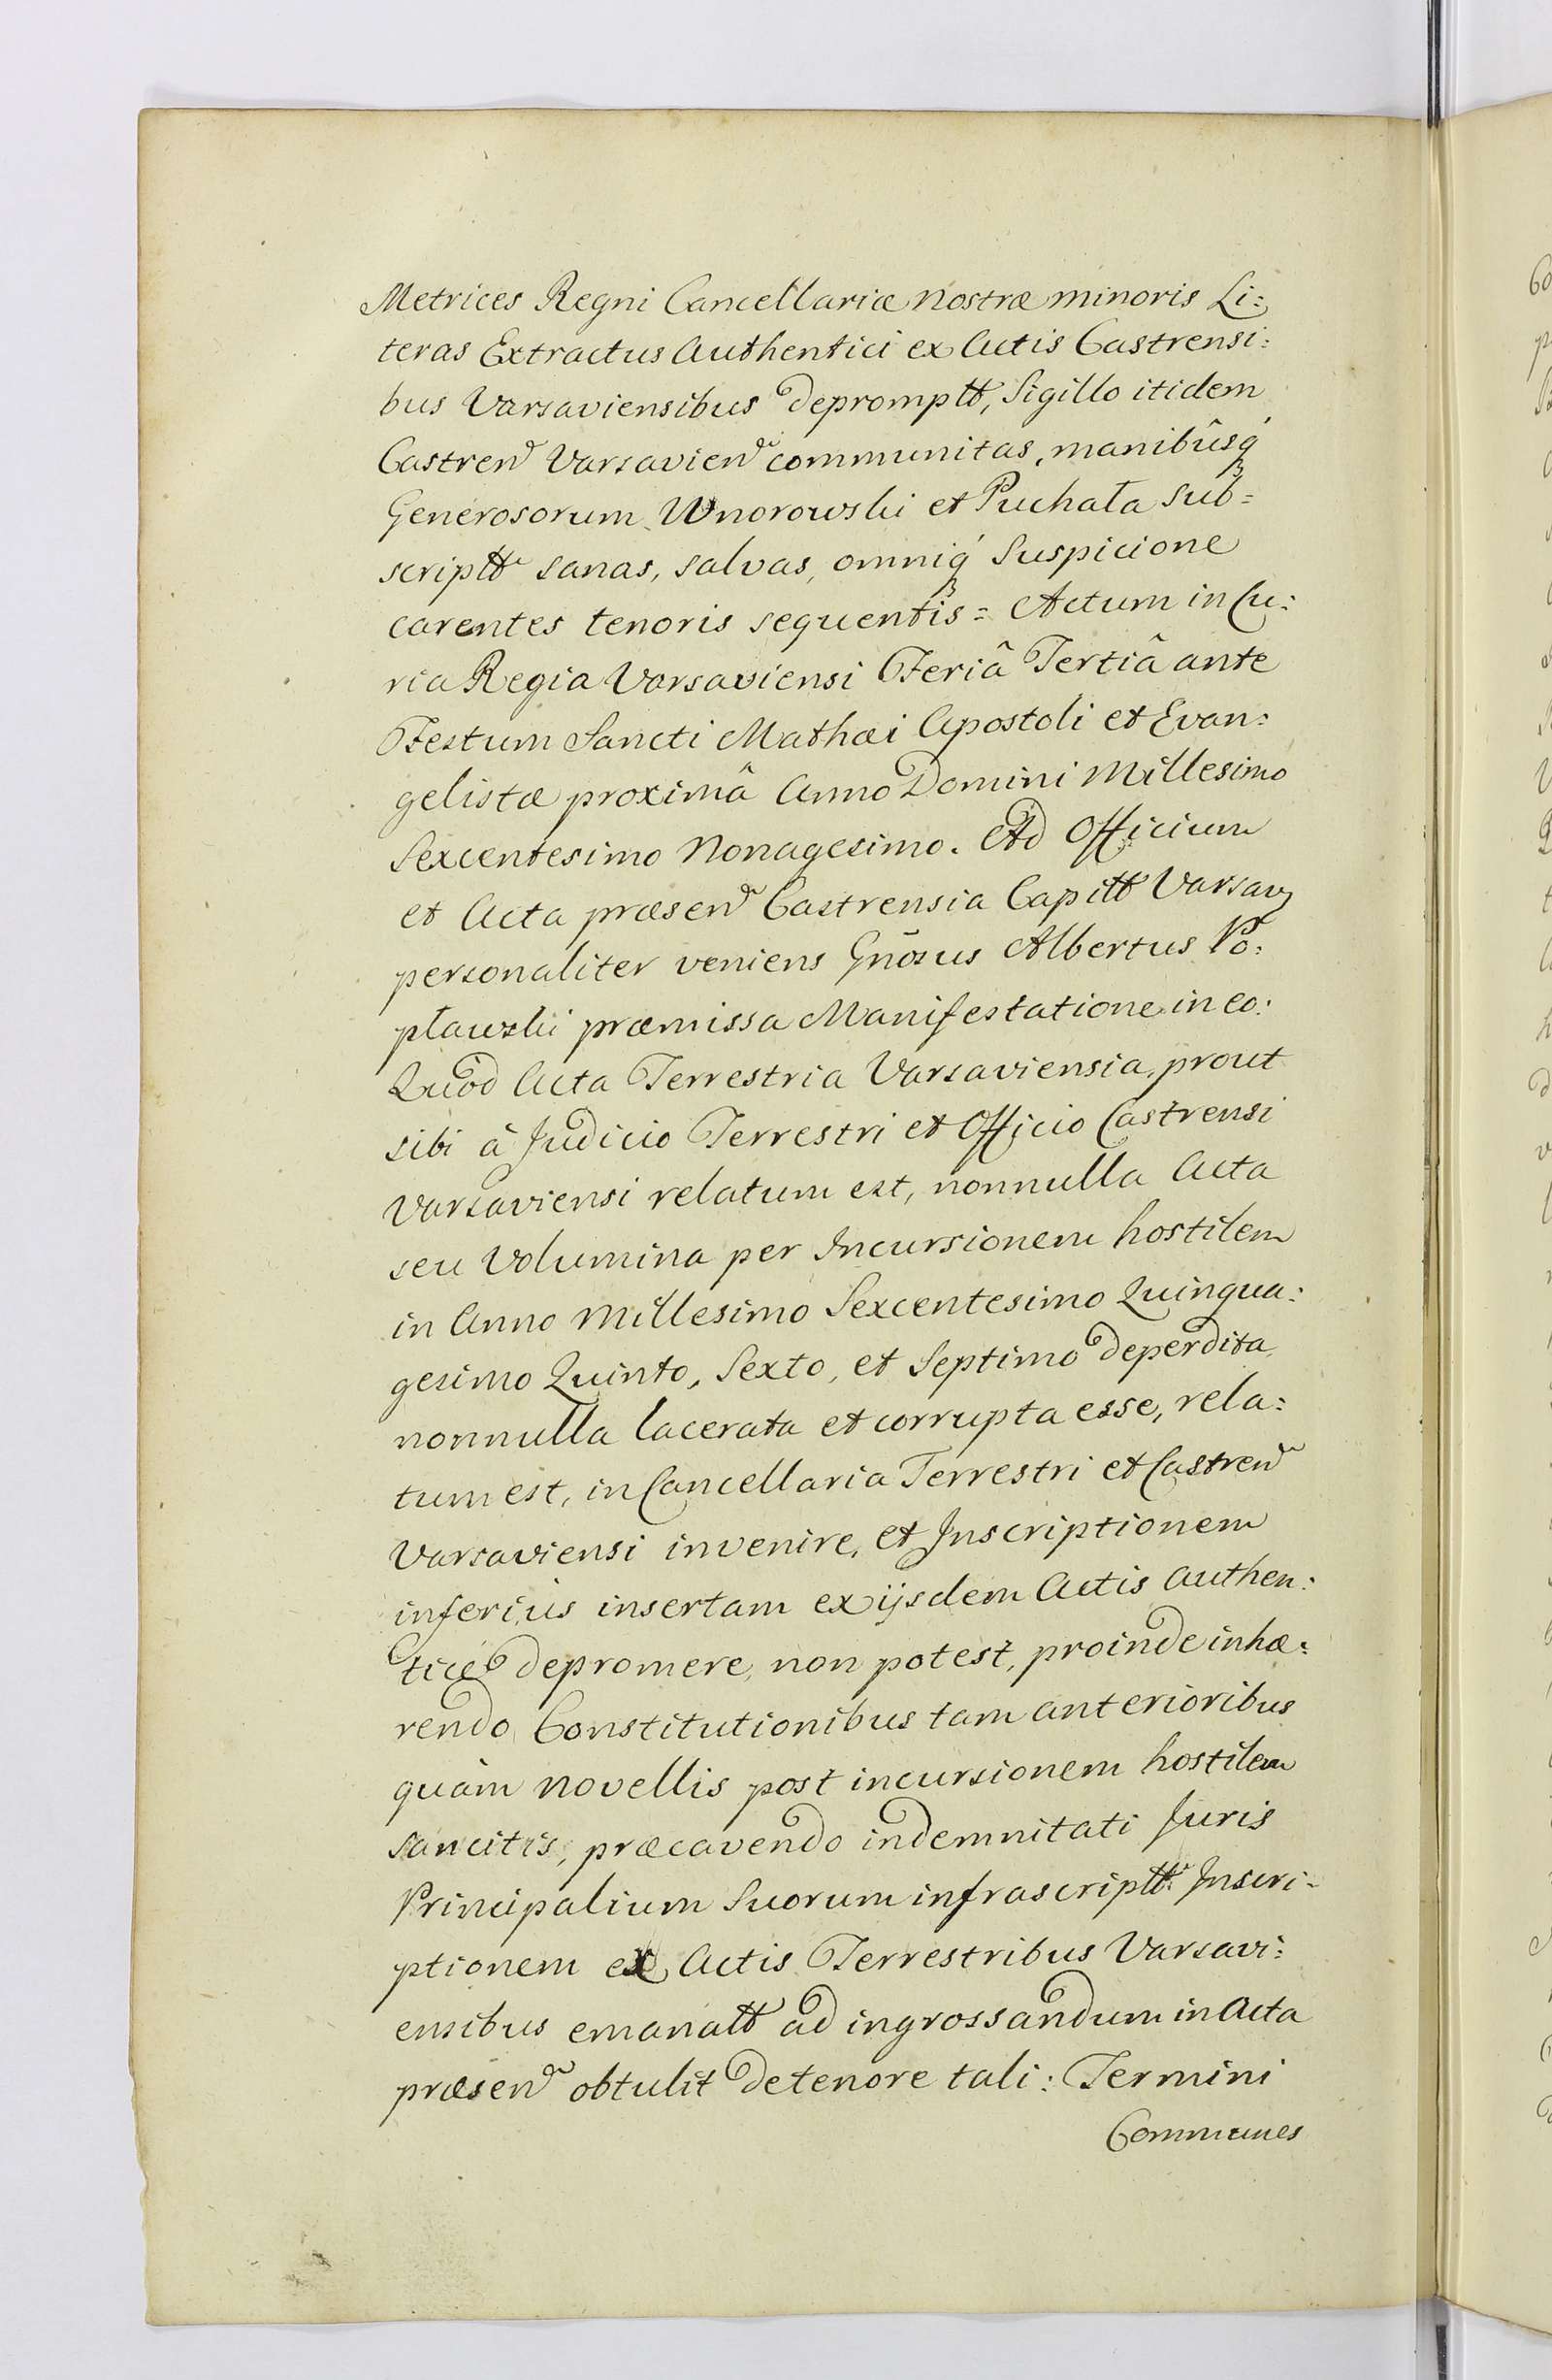 Metrices Regni Cancellariæ nostræ minoris Li:
teras Extractus Authentici ex Actis Castrensi:
bus Varsaviensibus depromptt, Sigillo itidem
Castren Varsavien communitas, manibûsq́
Generosorum Wnorowski et Puchała sub=
scriptt sanas, salvas, omniq́ Suspicione
carentes tenoris sequentis = Actum in Cu:
ria Regia Varsaviensi Feriâ Tertiâ ante
Festum Sancti Mathæi Apostoli et Evan:
gelistæ proximâ Anno Domini Millesimo
Sexcentesimo Nonagesimo. Ad Officium
et Acta præsen Castrensia Capitt Varsav
personaliter veniens Gnōsus Albertus Po:
pławski præmissa Manifestatione in eo:
Quòd Acta Terrestria Varsaviensia, prout
sibi â Judicio Terrestri et Officio Castrensi
Varsaviensi relatum est, nonnulla Acta
seu Volumina per Incursionem hostilem
in Anno Millesimo Sexcentesimo Quinqua:
gesimo Quinto, Sexto, et Septimo deperdita,
nonnulla lacerata et corrupta esse, rela:
tum est, in Cancellaria Terrestri et Castren
Varsaviensi invenire, et Inscriptionem
inferius insertam ex ijsdem Actis Authen:
ticè depromere, non potest, proinde inhæ:
rendo Constitutionibus tam anterioribus
quàm novellis post incursionem hostilem
sancitis, præcavendo indemnitati Juris
Principalium Suorum infrascriptt Inscri-
ptionem ex Actis Terrestribus Varsavi:
ensibus emanatt ad ingrossandum in Acta
præsen obtulit de tenore tali: Termini
Communes